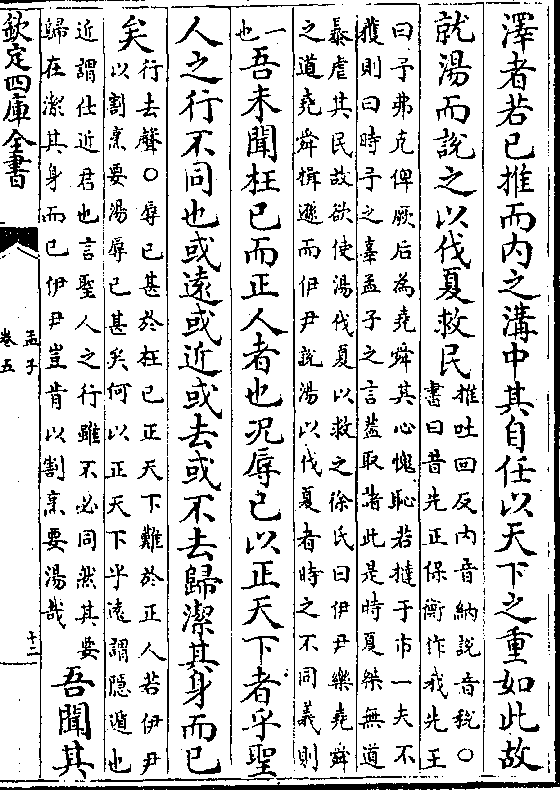 澤者若己推而内之溝中其自任以天下之重如此故
就湯而說之以伐夏救民
推吐回反内音納說音税○
書曰昔先正保衡作我先王
曰予弗克俾厥后為堯舜其心愧恥若撻于市一夫不
獲則曰時予之辜孟子之言蓋取諸此是時夏桀無道
暴虐其民故欲使湯伐夏以救之徐氏曰伊尹樂堯舜
之道堯舜揖遜而伊尹說湯以伐夏者時之不同義則
一
也
吾未聞枉己而正人者也况辱己以正天下者乎聖
人之行不同也或遠或近或去或不去歸潔其身而已
矣
行去聲○辱己甚於枉己正天下難於正人若伊尹
以割烹要湯辱己甚矣何以正天下乎遠謂隠遁也
近謂仕近君也言聖人之行雖不必同然其要
歸在潔其身而已伊尹豈肯以割烹要湯哉
吾聞其
欽定四庫全書
孟子
卷五
十二